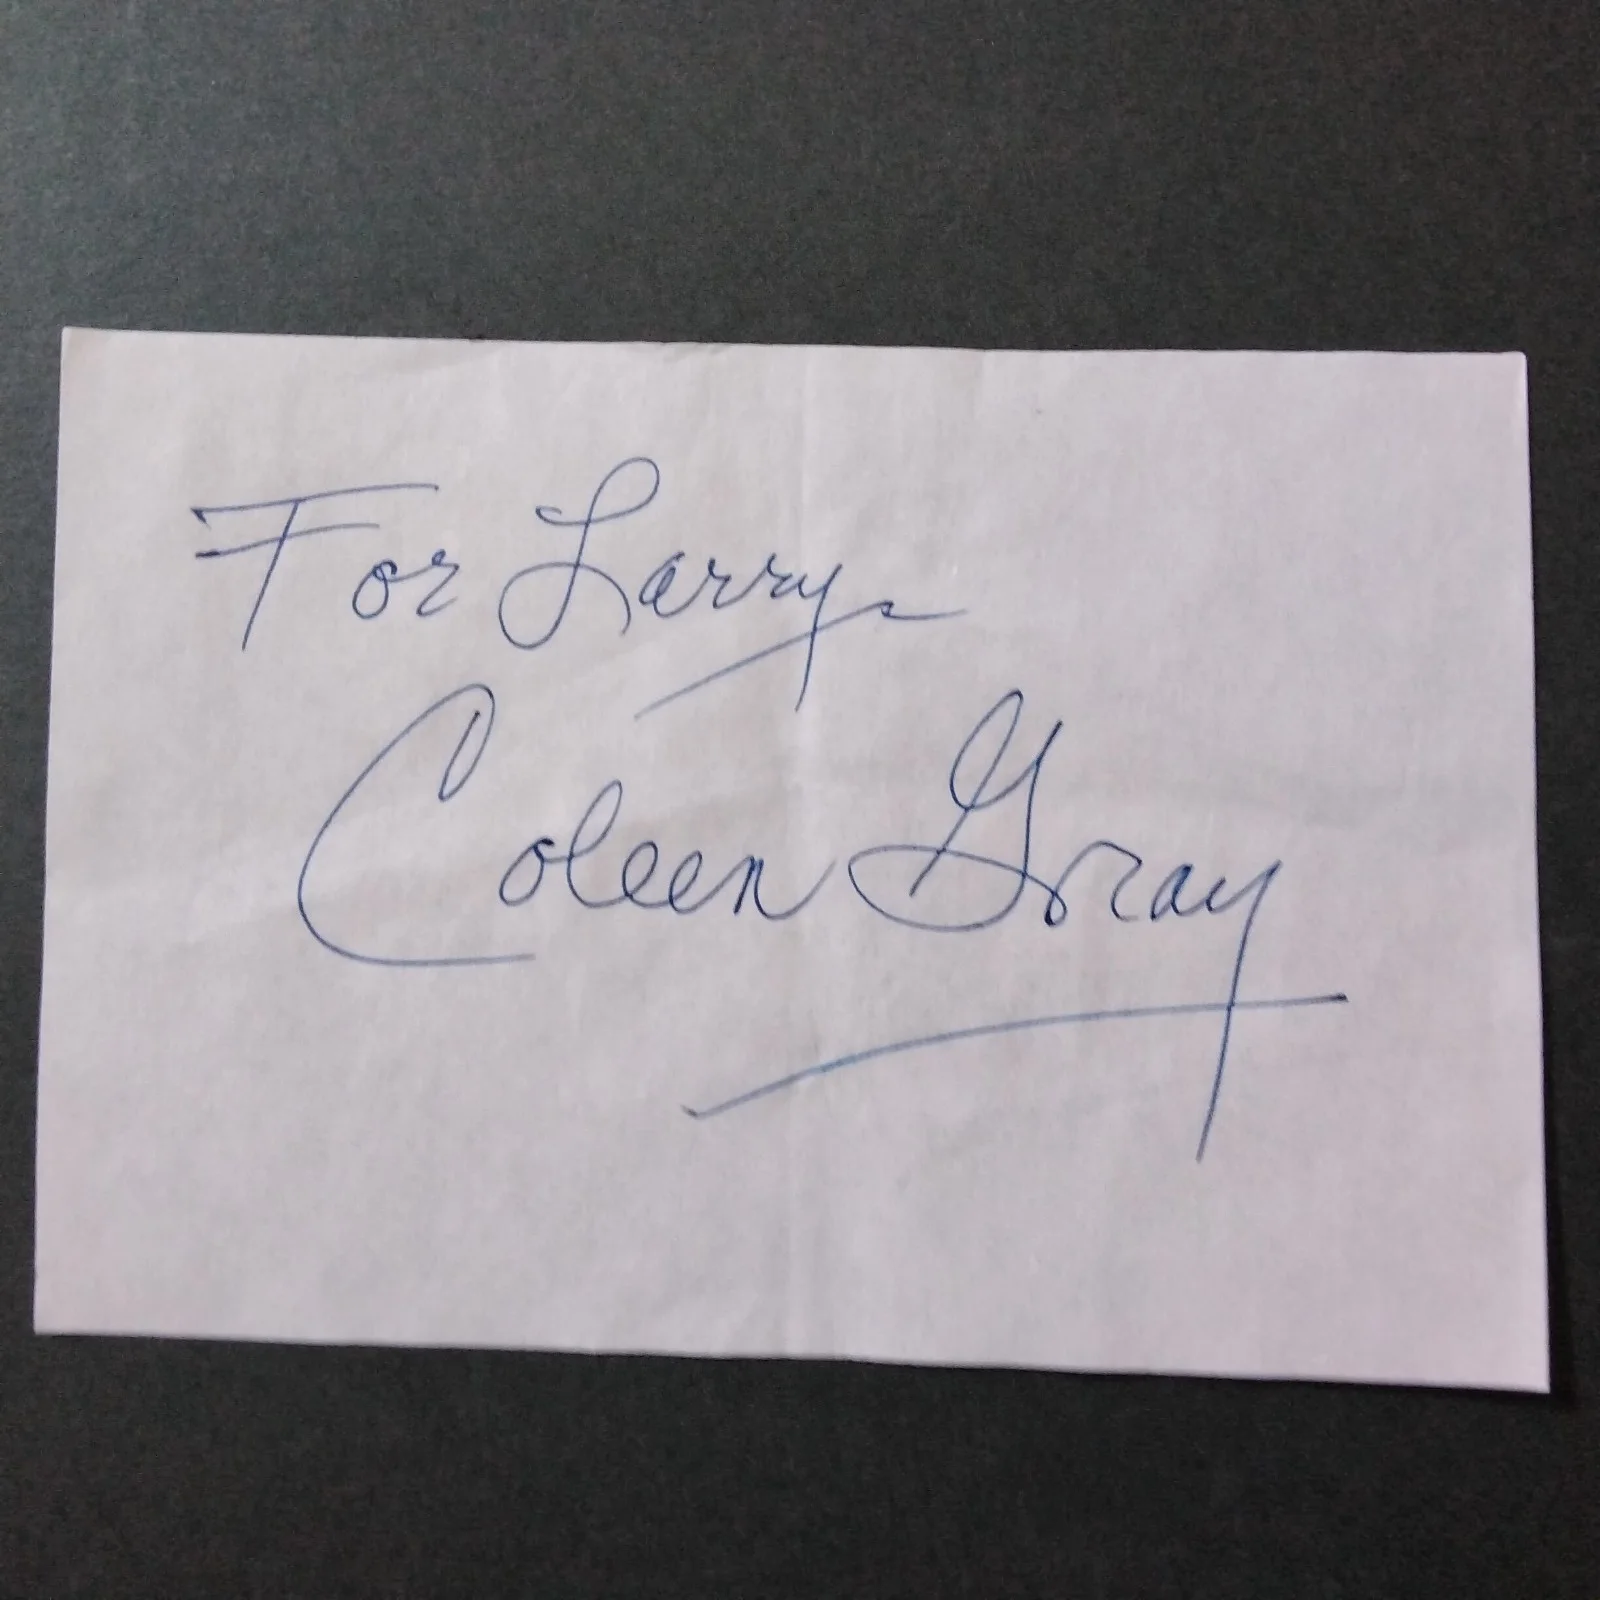 For Larry
Coleen Gray